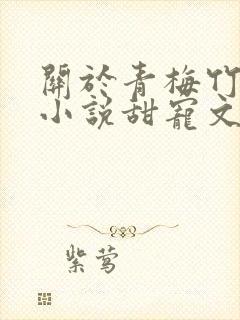 關於青梅竹
小說甜寵文
紫莺